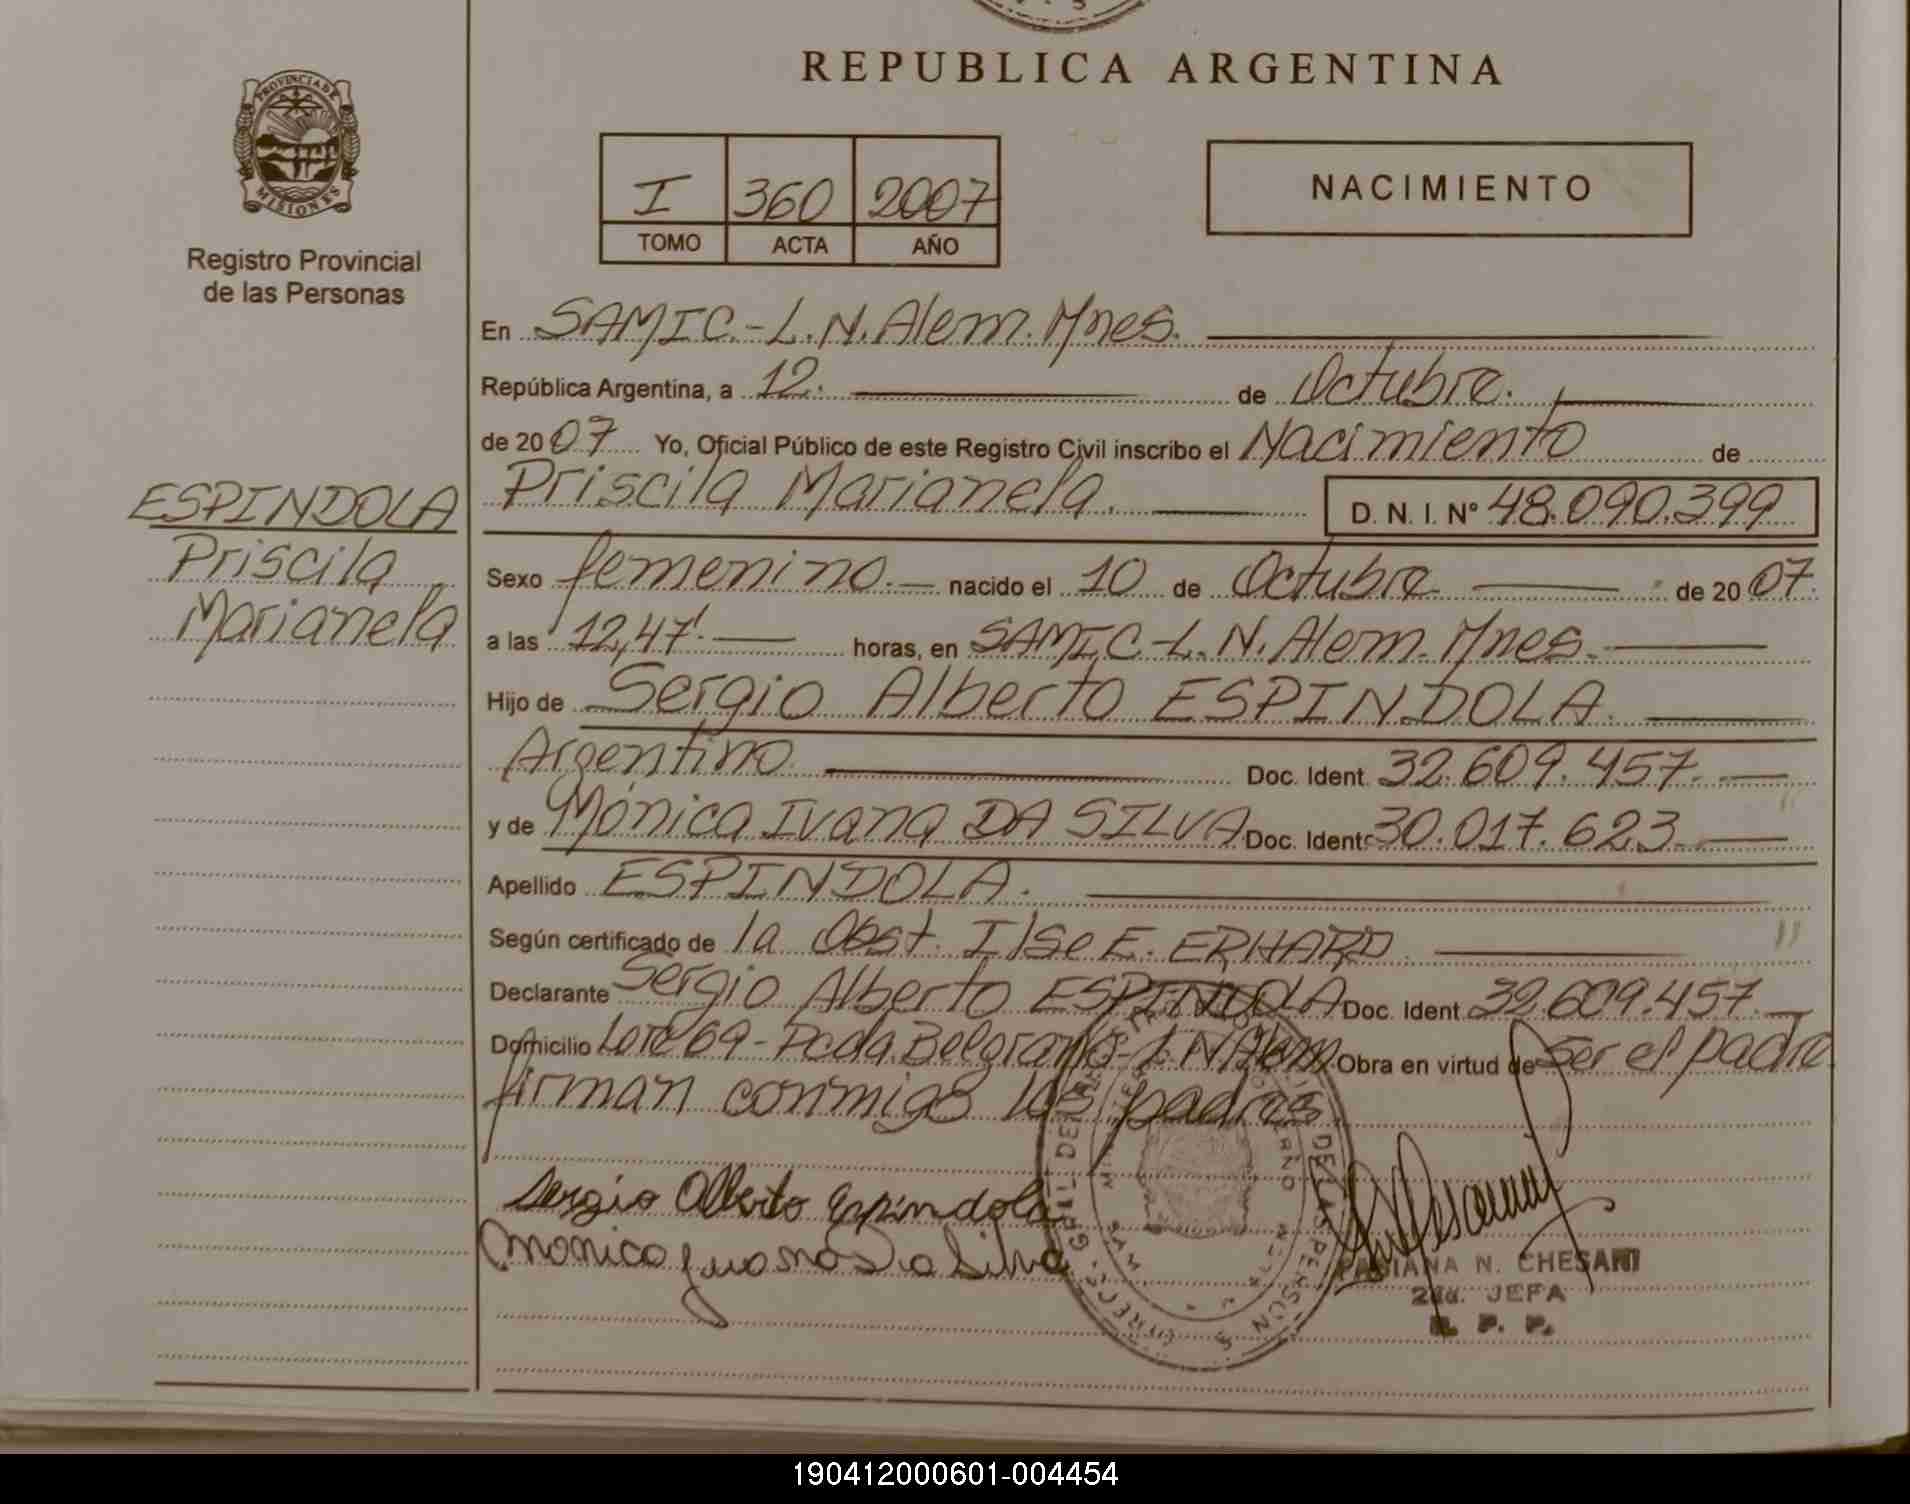 REPUBLICA ARGENTINA
PROVINCIA DE MISIONES
Registro Provincial
de las Personas
I 360 2007
TOMO ACTA AÑO
NACIMIENTO
En SAMIC.-L.N.Alem.Mnes.
República Argentina, a 12. de Octubre.
de 2007 Yo, Oficial Público de este Registro Civil inscribo el Nacimiento de
Priscila Marianela. D. N. I. Nº 48.090.399
ESPINDOLA
Priscila
Marianela
Sexo femenino.- nacido el 10 de Octubre de 2007.
a las 12,47'. horas, en SAMIC-L.N.Alem.Mnes.
Hijo de Sergio Alberto ESPINDOLA.
Argentino Doc. Ident. 32.609.457.
y de Mónica Ivana DA SILVA Doc. Ident. 30.017.623.
Apellido ESPINDOLA.
Según certificado de la Obst. Ilse E. ERHARD.
Declarante Sergio Alberto ESPINDOLA Doc. Ident. 32.609.457.
Domicilio Lote 69-Pcda.Belgrano-L.N.Alem. Obra en virtud de Ser el padre
firman conmigo los padres
Sergio Alberto Espindola
Monica Ivana Da Silva
FABIANA N. CHESANI
2da. JEFA
R. P. P.
190412000601-004454